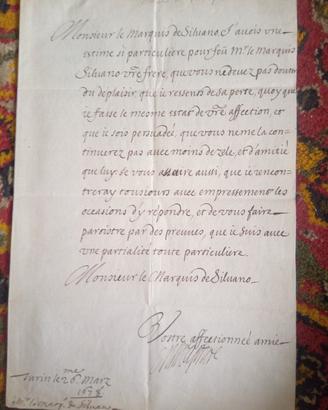 Monsieur le Marquis de Siluano J'auois vne
estime si particuliere pour feu Mr. le Marquis
Siluano vr̃e frere, que vous ne deuez pas douter
du deplaisir, que ie ressents de sa perte, quoy que
ie fasse le mesme estat de vr̃e affection, et
que ie sois persuadée, que vous ne me la con-
tinuerez pas auec moins de zele, et d'amitié
que luy. Je vous assure aussi, que ie rencon-
treray tousiours auec empressement les
occasions d'y répondre, et de vous faire
paroistre par des preuues, que ie suis auec
vne partialité toute particuliere.
Monsieur le Marquis de Siluano
Vostre affectionée amie
Turin le 26me Marz
1678
Mr. le marq. de Siluano